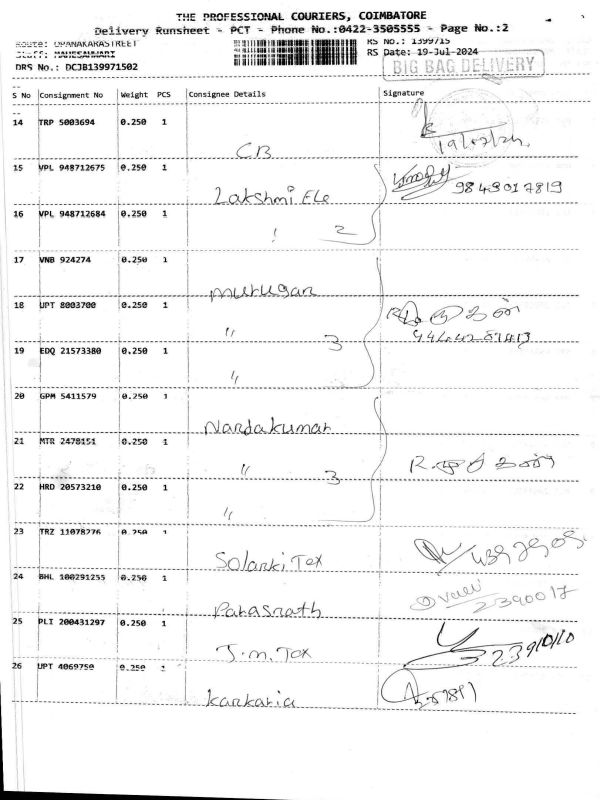 THE PROFESSIONAL COURIERS, COIMBATORE
Delivery Runsheet - PCT - Phone No.:0422-3505555 - Page No.:2
Route: OPANAKARASTREET RS No.: 1399715
RS Date: 19-Jul-2024
DRS No.: DCJB139971502 BIG BAG DELIVERY
S No Consignment No Weight PCS Consignee Details Signature
14 TRP 5003694 0.250 1
CB 19/07/24
15 VPL 948712675 0.250 1
Lakshmi Ele 9843017819
16 VPL 948712684 0.250 1
2
17 VNB 924274 0.250 1
Murugan
18 UPT 8003700 0.250 1
" 3
19 EDQ 21573380 0.250 1
"
20 GPM 5411579 0.250 1
Nandakumar
21 MTR 2478151 0.250 1
" 3
22 HRD 20573210 0.250 1
"
23 TRZ 11078276 0.250 1
Solanki Tex
24 BHL 100291255 0.250 1
Parasnath 2390017
25 PLI 200431297 0.250 1
J.m. Tex
26 UPT 4069750 0.250 1
Karkaria